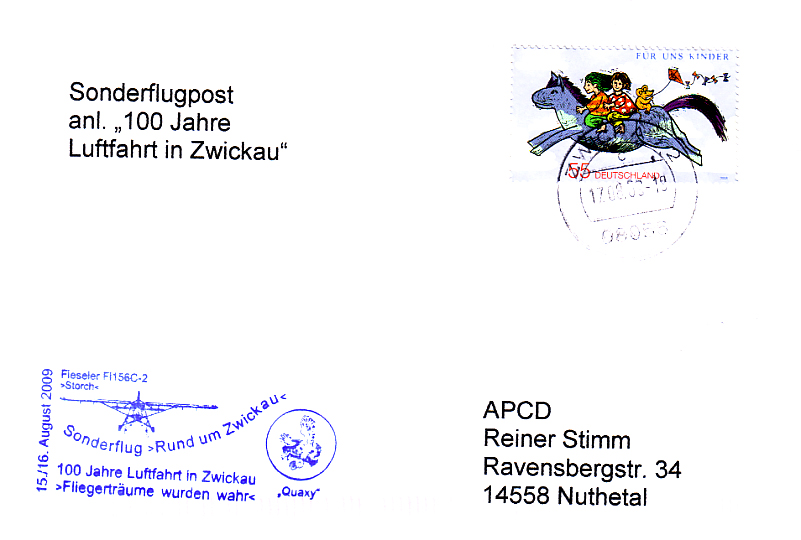 Sonderflugpost
anl. „100 Jahre
Luftfahrt in Zwickau“
FÜR UNS KINDER
55 DEUTSCHLAND
15./16. August 2009
Fieseler FI156C-2
>Storch<
Sonderflug >Rund um Zwickau<
100 Jahre Luftfahrt in Zwickau
>Fliegerträume wurden wahr<
„Quaxy“
APCD
Reiner Stimm
Ravensbergstr. 34
14558 Nuthetal